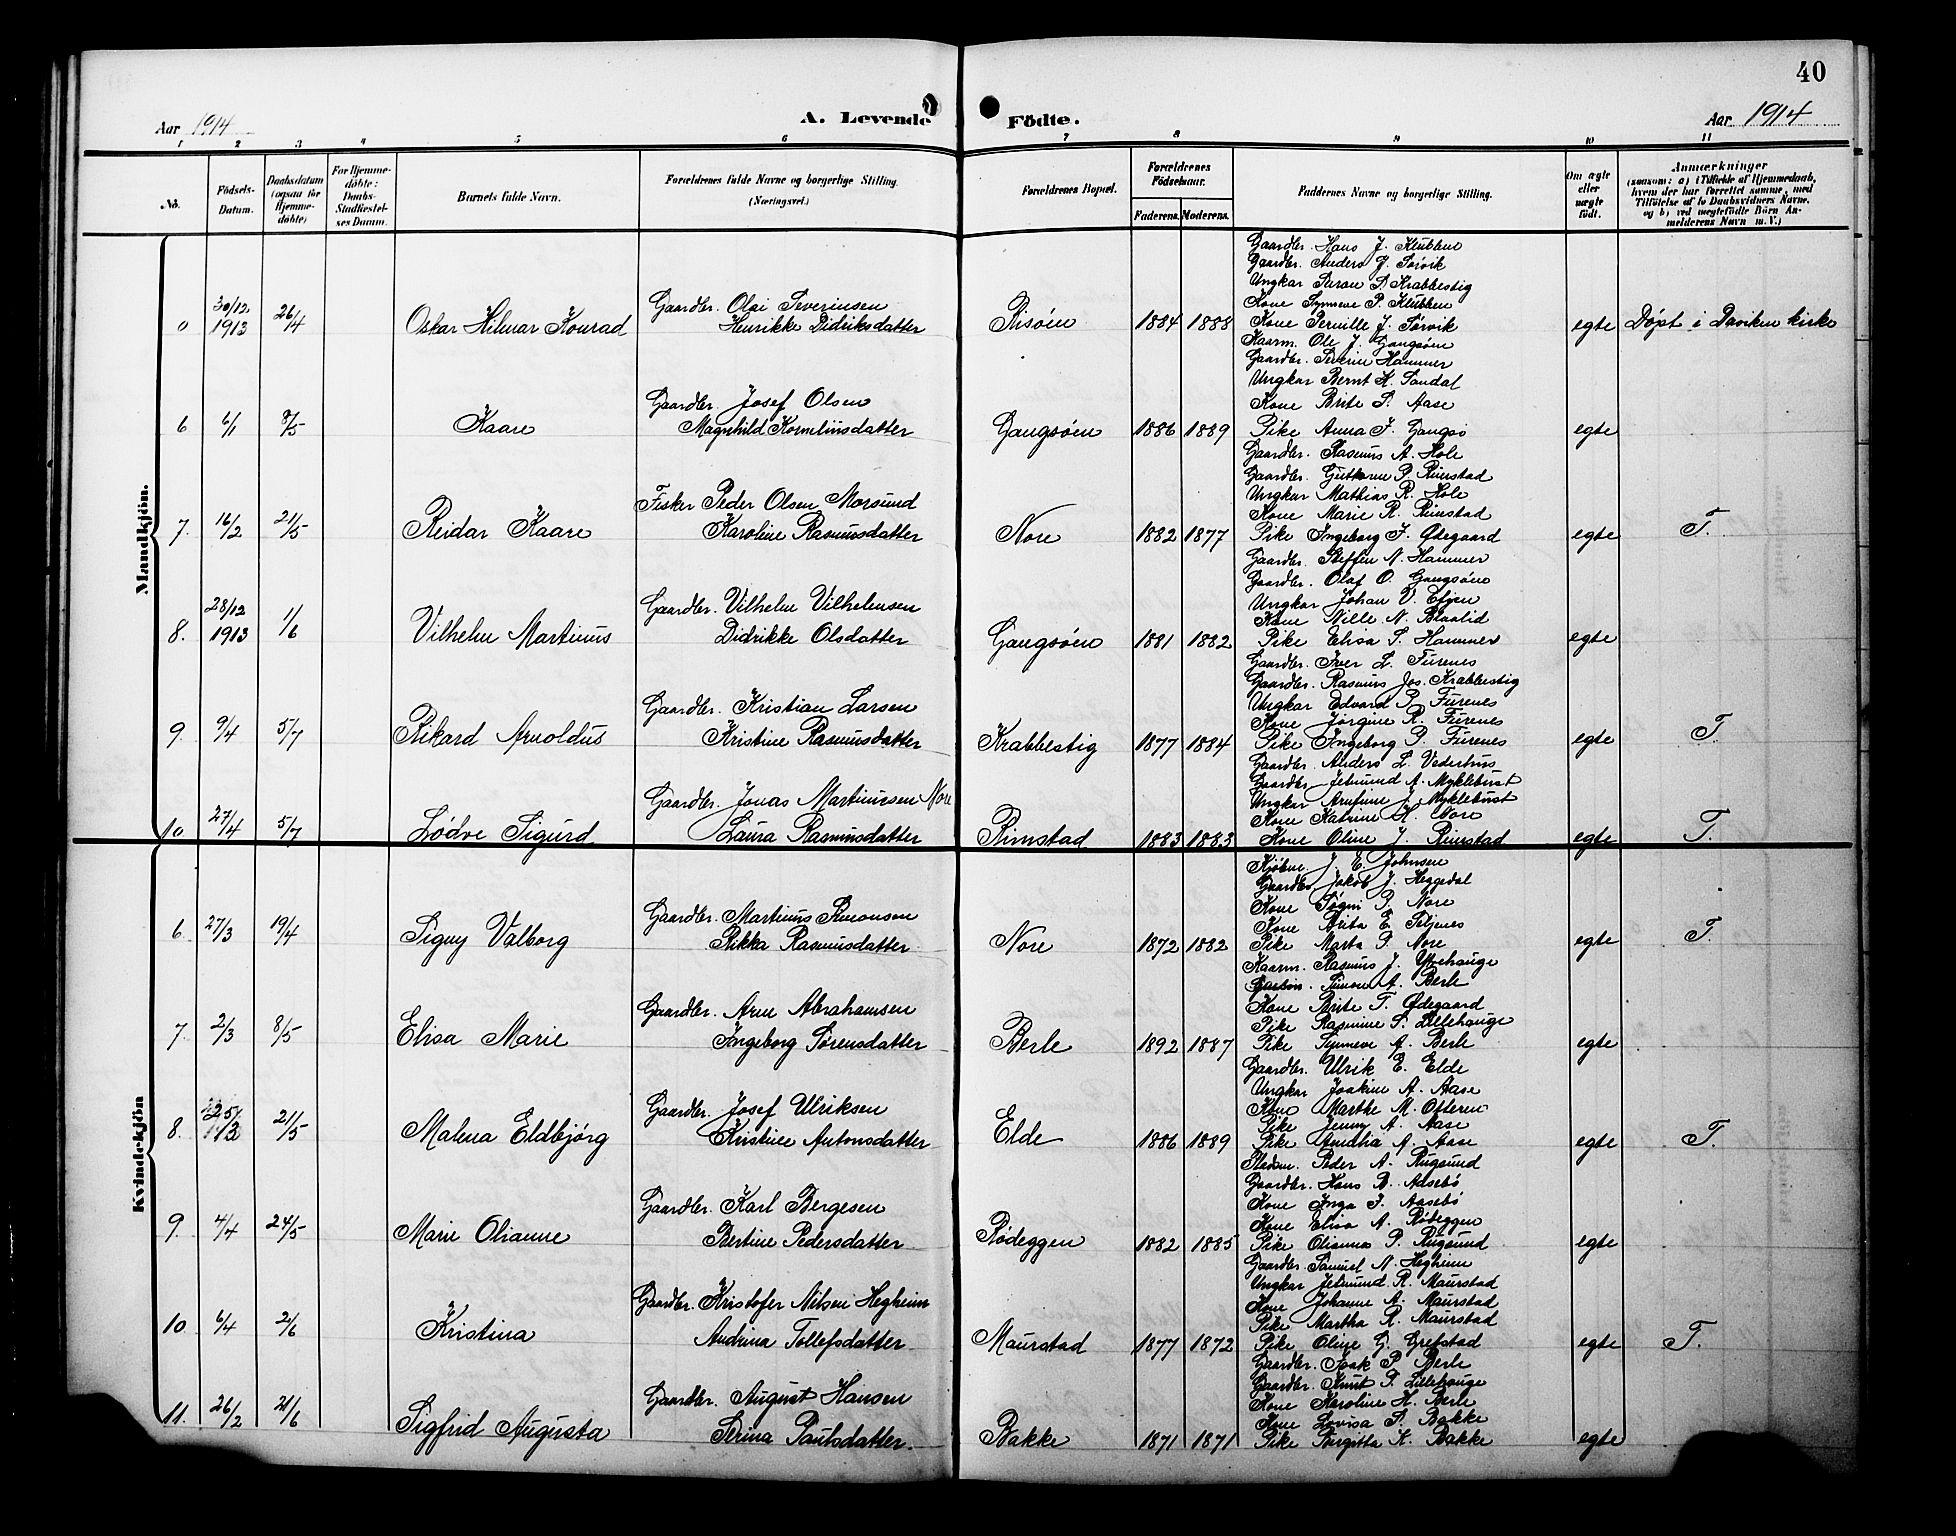 40
Aar 1914
A. Levende Födte.
Aar 1914
1 2 3 4 5 6 7 8 9 10 11
No.
Födsels-Datum.
Daabsdatum (ogsaa for Hjemme-döbte)
For Hjemme-döbte: Daabs-Stadfæstel-ses Datum.
Barnets fulde Navn.
Forældrenes fulde Navne og borgerlige Stilling. (Næringsvei.)
Forældrenes Bopæl.
Forældrenes Födselsaar.
Faderens. Moderens.
Faddernes Navne og borgerlige Stilling.
Om ægte eller uægte födt.
Anmærkninger
(saasom: a) i Tilfælde af Hjemmedaab, hvem der har forrettet samme, med Tilföielse af to Daabsvidners Navne, og b) ved uegtefödte Börn Anmelderens Navn m. V.)
Mandkjön.
Gaardbr. Hans J. Klubben
Gaardbr. Anders J. Sørvik
Ungkar D. Krabbestig
Kone Synneve P. Klubben
30/12 1913 26/14 Oskar Hilmar Konrad Gaardbr. Olai Severinsen
Henrikke Didriksdatter Risøen 1884 1888 Kone Pernille J. Sørvik egte Døpt i Daviken kirke
Kaarm. Ole J. Gangsøen
Gaardbr. Severin Hammer
Ungkar Bernt K. Sandal
Kone Brite S. Aase
6 6/1 3/5 Kaare Gaardbr. Josef Olsen
Magnhild Korneliusdatter Gangsøen 1886 1889 Pike Anna J. Gangsø egte
Gaardbr. Rasmus A. Hole
Gaardbr. Guttorm P. Rimstad
Ungkar Mathias R. Hole
Kone Marie R. Rimstad
7. 16/2 21/5 Reidar Kaare Fisker Peder Olsen Morsund
Karoline Rasmusdatter Nore 1882 1877 Pike Ingeborg J. Ødegaard egte T.
Gaardbr. Steffen N. Hammer
Gaardbr. Olaf O. Gangsøen
Ungkar Johan V.
Kone Nille N. Blaalid
8. 28/12 1913 1/6 Vilhelm Martinus Gaardbr. Vilhelm Vilhelmsen
Didrikke Olsdatter Gangsøen 1881 1882 Pike Elisa S. Hammer egte
Gaardbr. Iver L. Furenes
Gaardbr. Rasmus Jos. Krabbestig
Ungkar Edvard P. Furenes
Kone Jørgine R. Furenes
9. 9/4 5/7 Rikard Arnoldus Gaardbr. Kristian Larsen
Kristine Rasmusdatter Krabbestig 1877 1884 Pike Ingeborg P. Furenes egte T.
Gaardbr. Anders L. Vederhus
Gaardbr. Jetmund A. Myklebust
Ungkar J. Myklebust
Kone Katrine K. Nore
10 27/4 5/7 Lødve Sigurd Gaardbr. Jonas Martinusen Nore
Laura Rasmusdatter Rimstad 1883 1883 Kone Oline J. Rimstad egte T.
Kvindekjön
Kjøbm. J. E. Johnsen
Gaardbr. Jakob J. Heggedal
Kone Søgni P. Nore
Kone E.
6. 27/3 19/4 Signy Valborg Gaardbr. Martinus Simonsen
Rikka Rasmusdatter Nore 1872 1882 Pike Marta P. Nore egte T.
Kaarm. Rasmus J. Ytrehauge
Simon A. Berle
Kone Brite T. Ødegaard
Pike Rasmine S. Lillehauge
7. 2/3 8/5 Elisa Marie Gaardbr. Arne Abrahamsen
Ingeborg Sørensdatter Berle 1892 1887 Pike Synneve A. Berle egte
Gaardbr. Ulrik E. Elde
Ungkar Joakim A. Aase
Kone Marthe M. Otteren
Pike Jenny A. Aase
8. 25/3 21/5 Malena Eldbjørg Gaardbr. Josef Ulriksen
Kristine Antonsdatter Elde 1886 1889 Pike Amalia A. Aase egte T.
Peder A. Rugsund
Gaardbr. Hans B. Aasebø
Kone Inga J. Aasebø
Kone Elisa A. Rødeggen
9. 4/4 24/5 Marie Olianne Gaardbr. Karl Bergesen
Bertine Pedersdatter Rødeggen 1882 1885 Pike Olianna P. Rugsund egte
Gaardbr. Samuel N. Hegheim
Ungkar Jetmund R. Maurstad
Kone Johanne A. Maurstad
Pike Martha R. Maurstad
10 6/4 2/6 Kristina Gaardbr. Kristofer Nilsen Hegheim
Andrina Tollefsdatter Maurstad 1877 1872 Pike Oline G. Grefstad egte T.
Gaardbr. Isak P. Berle
Gaardbr. Knut P. Lillehauge
Kone Karoline H. Berle
Kone Lovisa S. Bakke
11. 26/2 21/6 Sigfrid Augusta Gaardbr. August Hansen
Serina Paulsdatter Bakke 1871 1871 Pike Birgitta K. Bakke egte